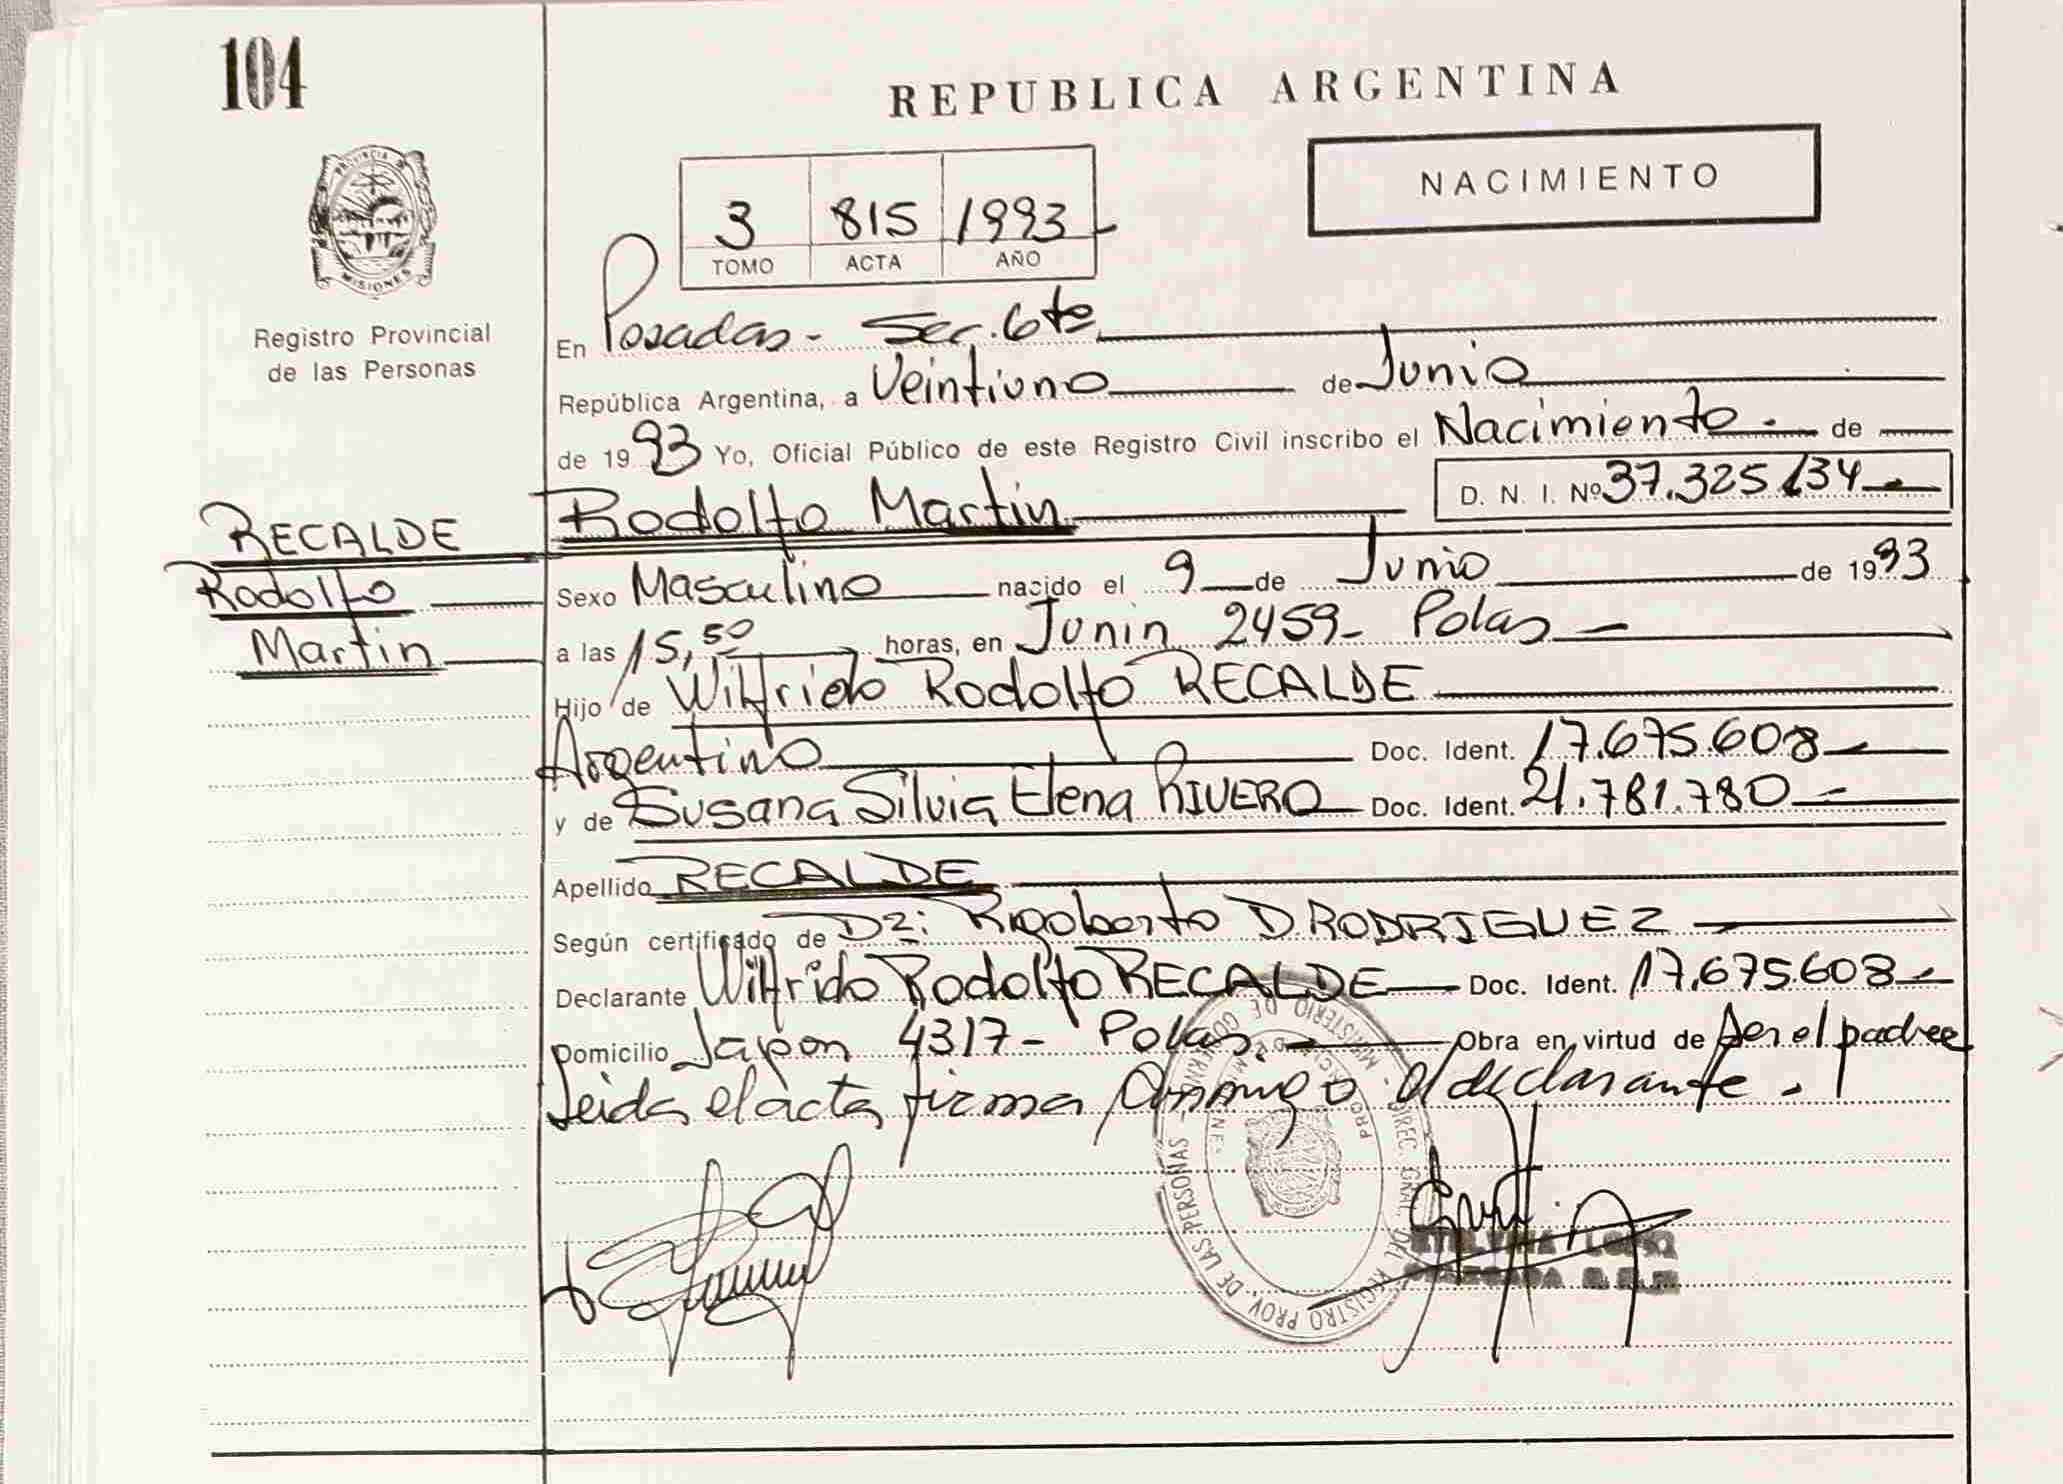 104
REPUBLICA ARGENTINA
NACIMIENTO
3 815 1993
TOMO ACTA AÑO
PROVINCIA DE MISIONES
Registro Provincial
de las Personas
En Posadas - Sec. 6ta
República Argentina, a Veintiuno de Junio
de 1993 Yo, Oficial Público de este Registro Civil inscribo el Nacimiento - de
RECALDE
Rodolfo
Martin
Rodolfo Martin D. N. I. Nº 37.325.134
Sexo Masculino nacido el 9 de Junio de 1993
a las 15,50 horas, en Junin 2459 - Pdas -
Hijo de Wilfrido Rodolfo RECALDE
Argentino Doc. Ident. 17.675.608
y de Susana Silvia Elena RIVERO Doc. Ident. 21.781.780
Apellido RECALDE
Según certificado de Dr: Rigoberto D RODRIGUEZ
Declarante Wilfrido Rodolfo RECALDE Doc. Ident. 17.675.608
Domicilio Japon 4317 - Pdas. Obra en virtud de ser el padre
leida el acta firma conmigo el declarante.
MINISTERIO DE GOBIERNO - DIREC. GRAL. DEL REGISTRO PROV. DE LAS PERSONAS